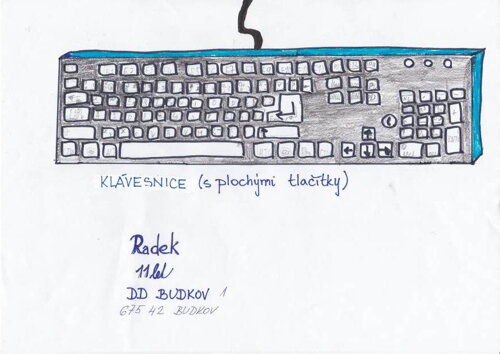 KLÁVESNICE (s plochými tlačítky)
Radek
11 let
DD BUDKOV 1
675 42 BUDKOV